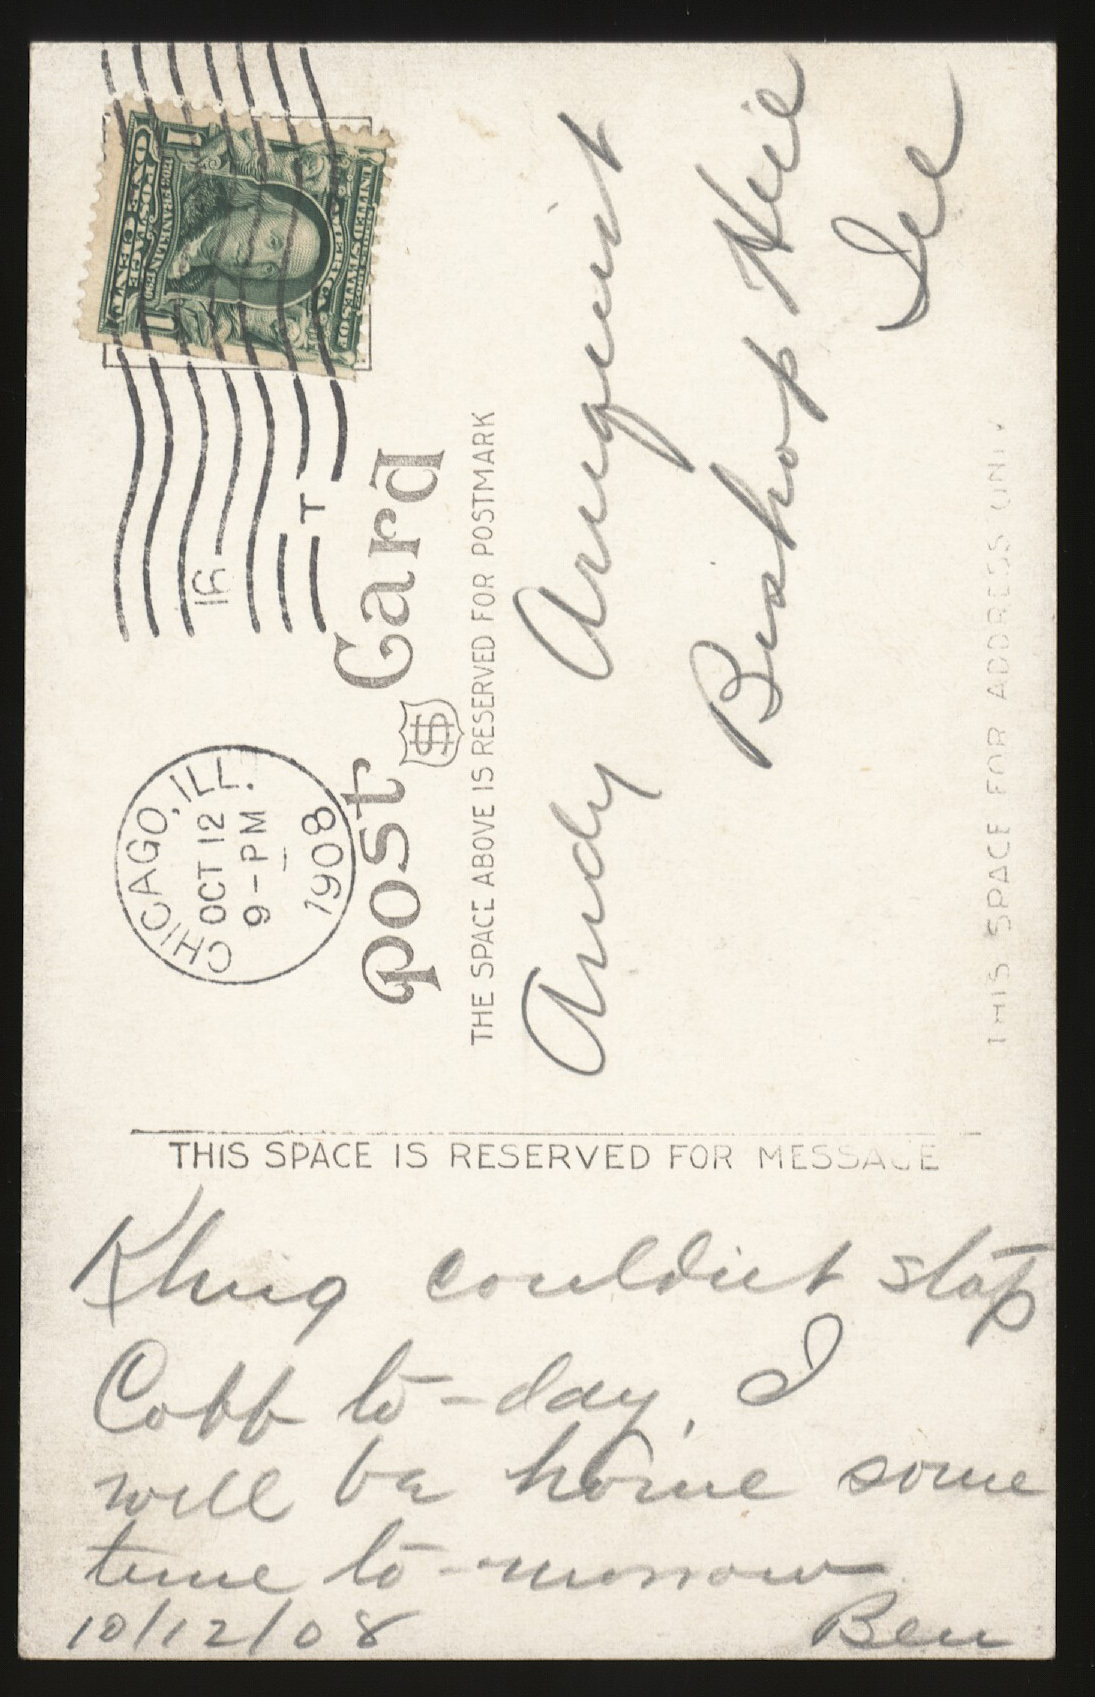 CHICAGO, ILL.
OCT 12
9-PM
1908
16
T
UNITED STATES OF AMERICA
FRANKLIN
POSTAGE
ONE CENT
1 1
Post Card
THE SPACE ABOVE IS RESERVED FOR POSTMARK
Andy
Bishop Hill
Ill
THIS SPACE FOR ADDRESS ONLY
THIS SPACE IS RESERVED FOR MESSAGE
couldn't stop
Cobb to-day, I
will be home some
time to-morrow
10/12/08 Ben